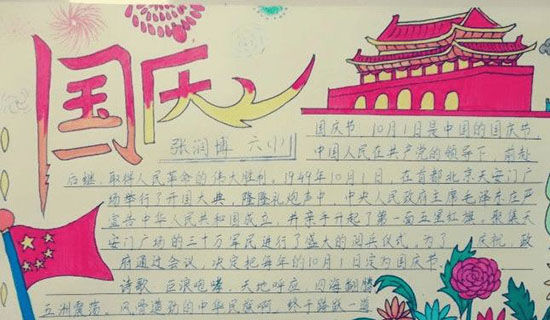 国庆
张润博 六(1)
国庆节 10月1日是中国的国庆节,
中国人民在共产党的领导下,前赴
后继,取得人民革命的伟大胜利,1949年10月1日,在首都北京天安门
广场举行了开国大典,隆隆礼炮声中,中央人民政府主席毛泽东庄严
宣告中华人民共和国成立,并亲手升起了第一面五星红旗,聚集天
安门广场的三十万军民进行了盛大的阅兵仪式,为了 庆祝,政
府通过会议,决定把每年的10月1日定为国庆节
诗歌 巨浪咆哮,天地呼应,四海翻腾
五洲震荡,风雪造劲的中华民族啊